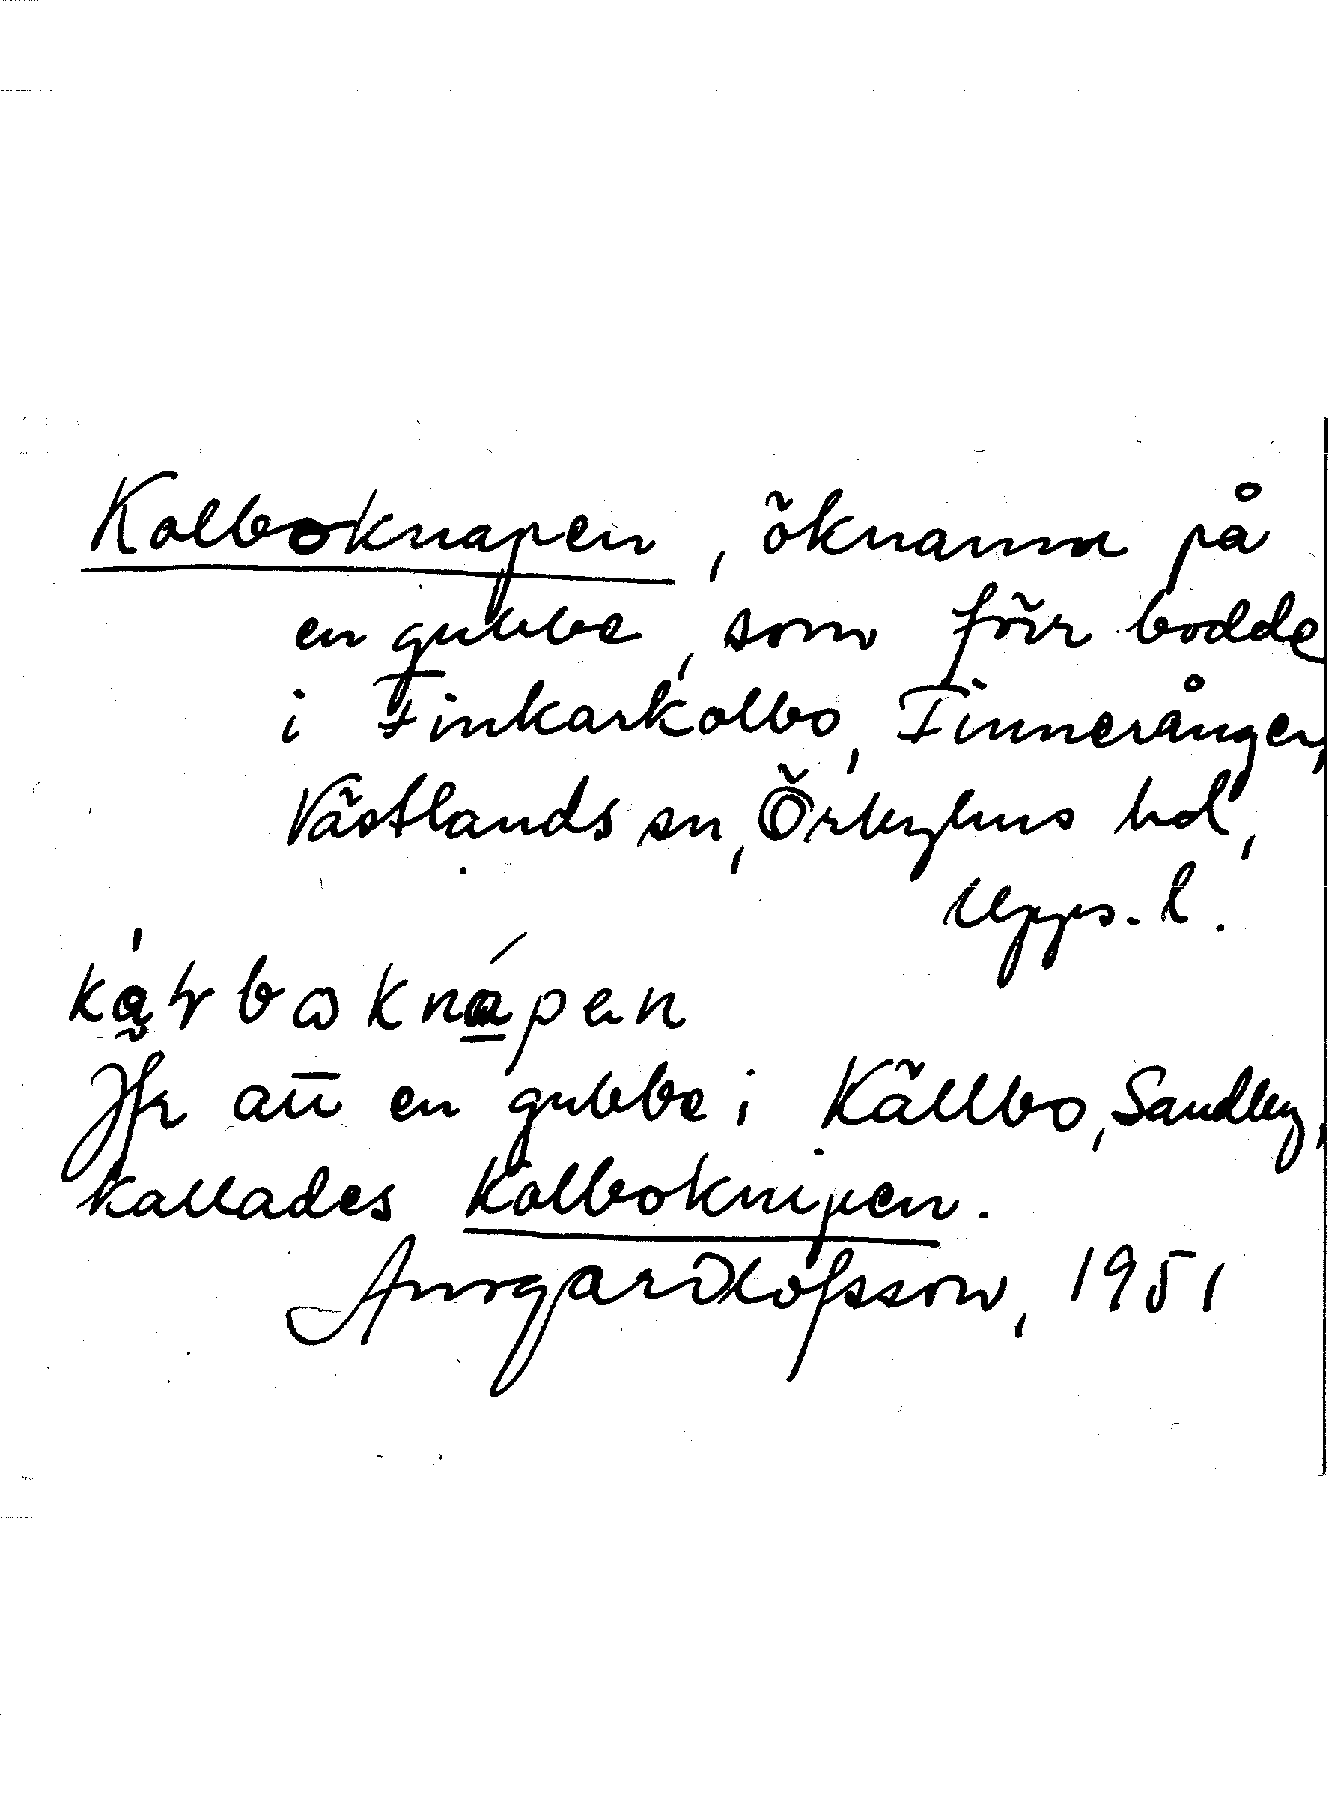 Kolboknapen, öknamn på
en gubbe, som förr bodde
i Finkarkolbo, Finnerånger,
Västlands sn, Örbyhus hd,
Upps. l.
Jfr att en gubbe i Källbo, Sandby,
kallades Kolboknipen.
Ansgar Olofsson, 1951